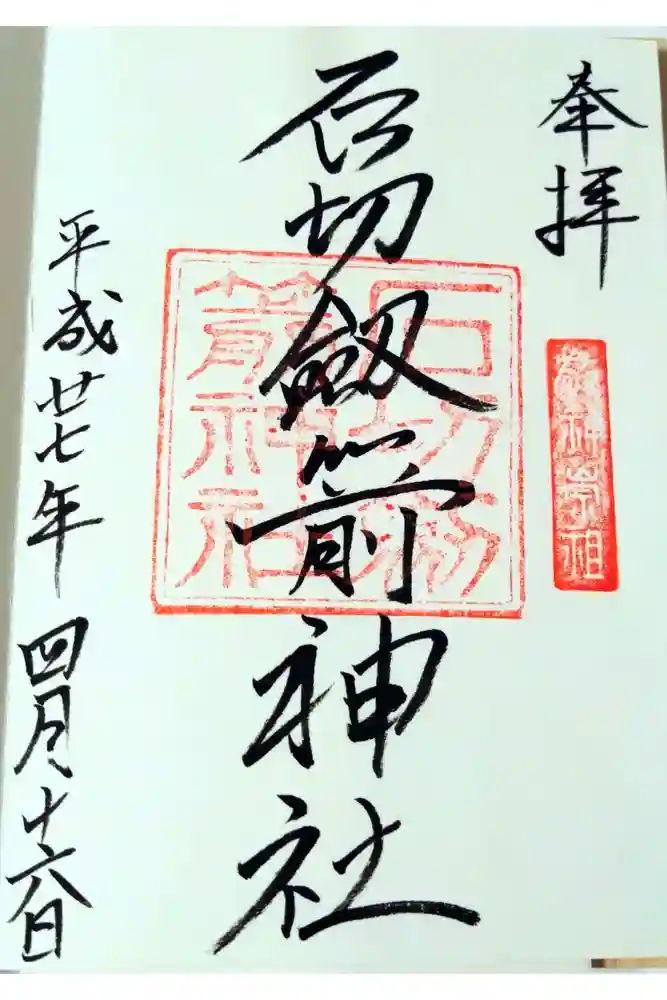 奉拝
敬神崇祖
石切劔箭神社
石切劔
箭神社
平成廿七年 四月十六日